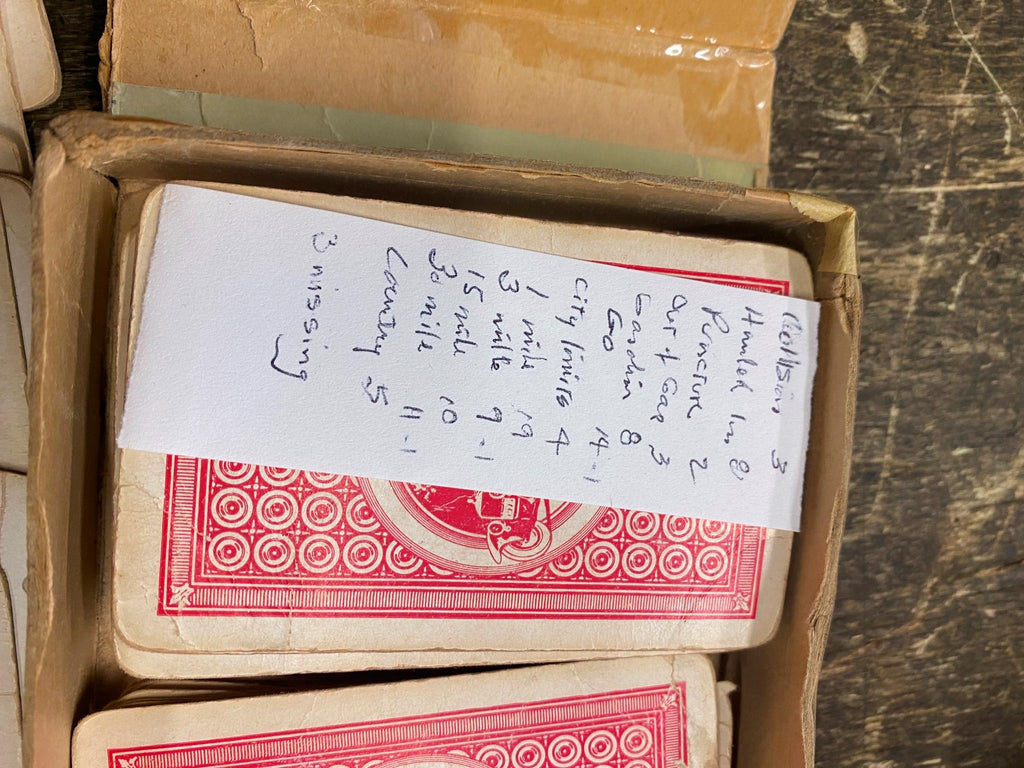 Collision 3
Hauled In 8
Puncture 2
Out of Gas 3
Gasolin 8
Go 14 -1
City limits 4
1 mile 19
3 mile 9 -1
15 mile 10
30 mile 11 -1
Country 5
3 missing